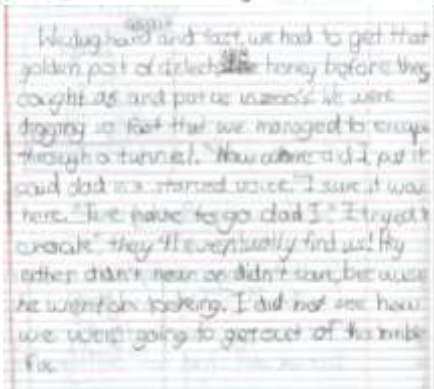 We dug hard and fast, we had to get that
golden pot of honey before they
caught us and put us in zoo's. We were
digging so fast that we managed to escape
through a tunnel. "Now where did I put it"
said dad in a starved voice. "I sure it was
here. "We have to go dad I." I tryed t
they'll eventually find us! My
didn't hear or didn't care, because
he went on looking. I did not see how
we were going to get out of
fix.